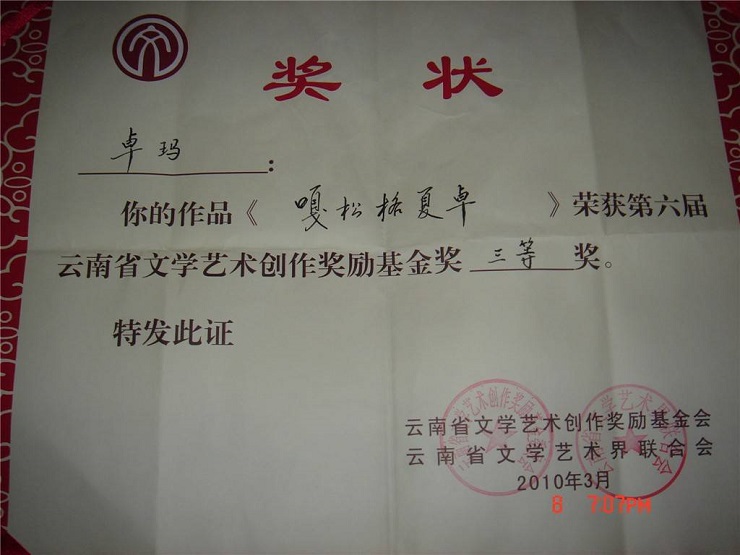 奖状
卓玛：
你的作品《嘎松格夏卓》荣获第六届
云南省文学艺术创作奖励基金奖三等奖。
特发此证
云南省文学艺术创作奖励基金会
云南省文学艺术界联合会
2010年3月
8 7:07PM